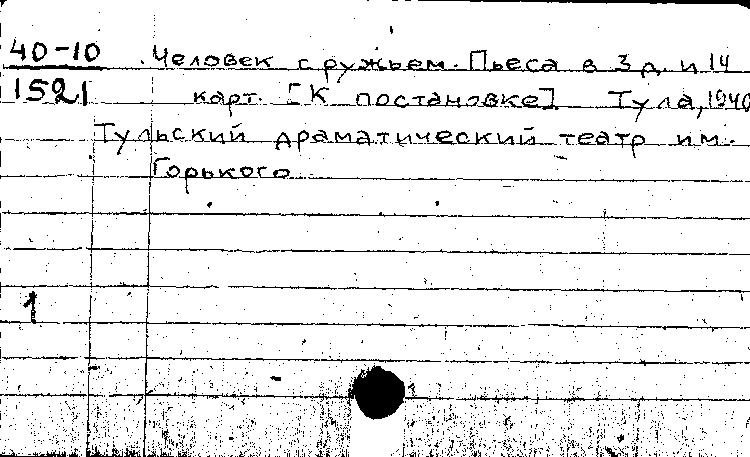 40-10 Человек с ружьем. Пьеса в 3 д. и 14
1521 карт. [К постановке]. Тула, 1940
Тульский драматический театр им.
Горького
1